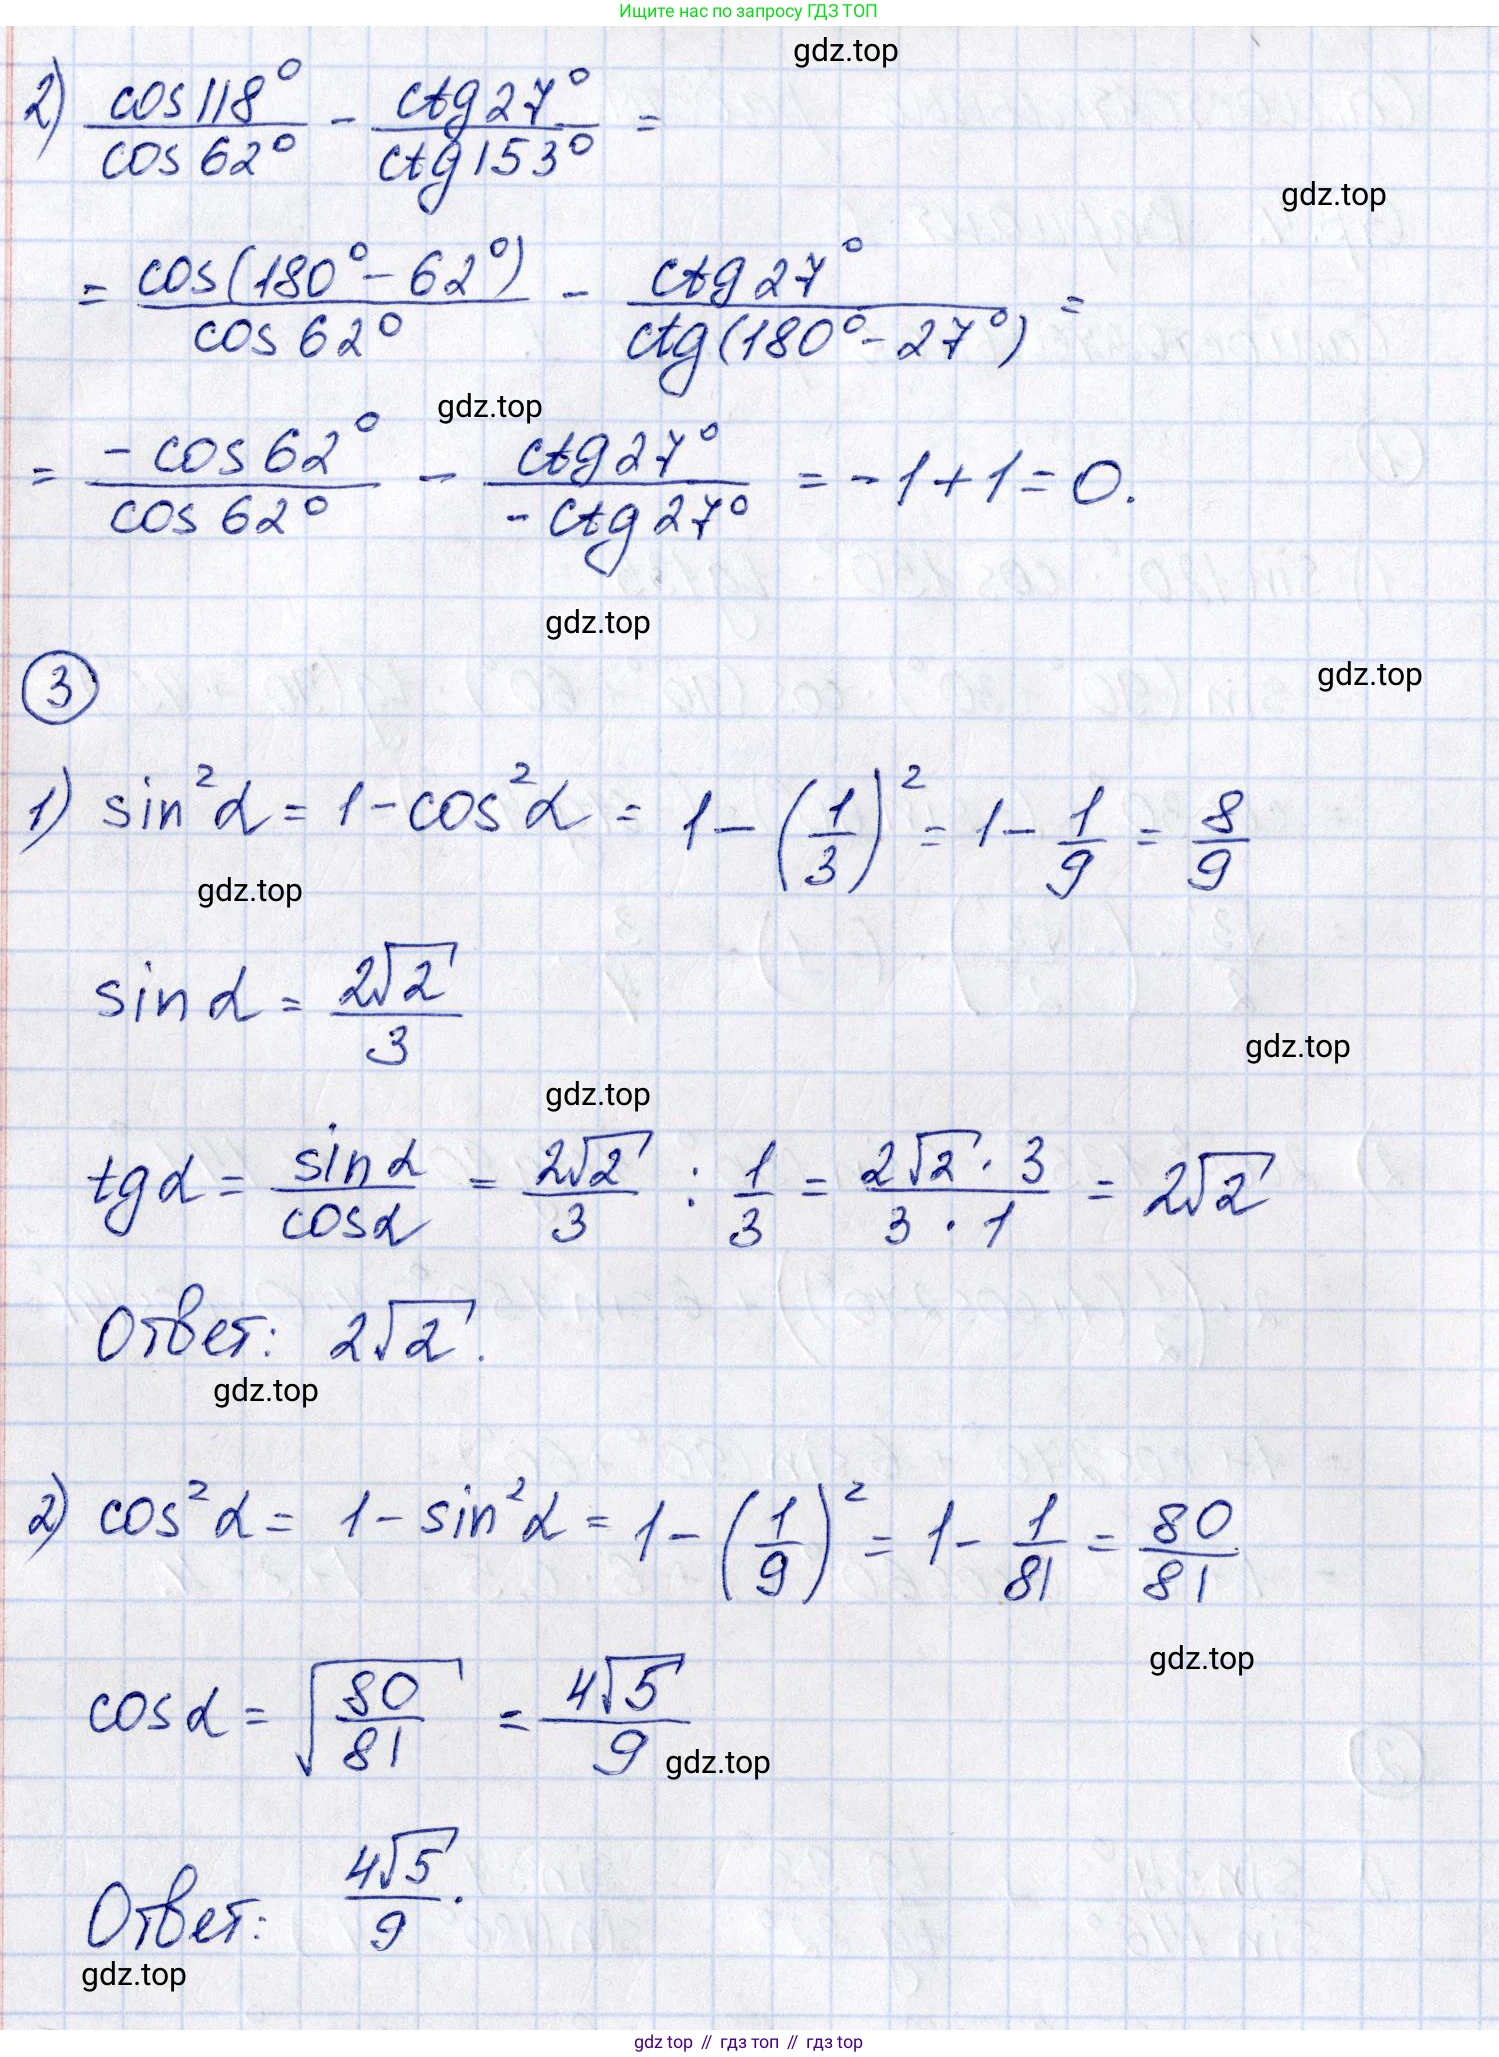 Ищите нас по запросу ГДЗ ТОП
gdz.top
2) cos118°/cos62° - ctg27°/ctg153° =
gdz.top
= cos(180°-62°)/cos62° - ctg27°/ctg(180°-27°) =
gdz.top
= -cos62°/cos62° - ctg27°/-ctg27° = -1+1=0.
gdz.top
3
gdz.top
1) sin²α = 1-cos²α = 1-(1/3)² = 1-1/9 = 8/9
gdz.top
sinα = 2√2/3
gdz.top
gdz.top
tgα = sinα/cosα = 2√2/3 : 1/3 = 2√2·3/3·1 = 2√2
Ответ: 2√2.
gdz.top
2) cos²α = 1-sin²α = 1-(1/9)² = 1-1/81 = 80/81
gdz.top
cosα = √80/81 = 4√5/9
gdz.top
Ответ: 4√5/9.
gdz.top
gdz top // гдз топ // гдз top